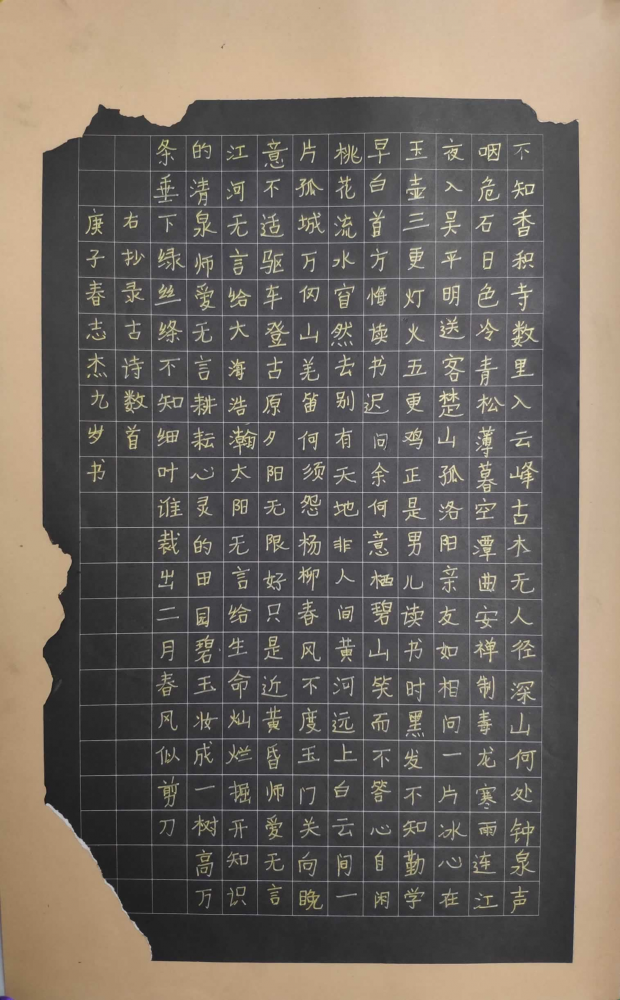 不知香积寺数里入云峰古木无人径深山何处钟泉声
咽危石日色冷青松薄暮空潭曲安禅制毒龙寒雨连江
夜入吴平明送客楚山孤洛阳亲友如相问一片冰心在
玉壶三更灯火五更鸡正是男儿读书时黑发不知勤学
早白首方悔读书迟问余何意栖碧山笑而不答心自闲
桃花流水窅然去别有天地非人间黄河远上白云间一
片孤城万仞山羌笛何须怨杨柳春风不度玉门关向晚
意不适驱车登古原夕阳无限好只是近黄昏师爱无言
江河无言给大海浩瀚太阳无言给生命灿烂掘开知识
的清泉师爱无言耕耘心灵的田园碧玉妆成一树高万
条垂下绿丝绦不知细叶谁裁出二月春风似剪刀
右抄录古诗数首
庚子春志杰九岁书